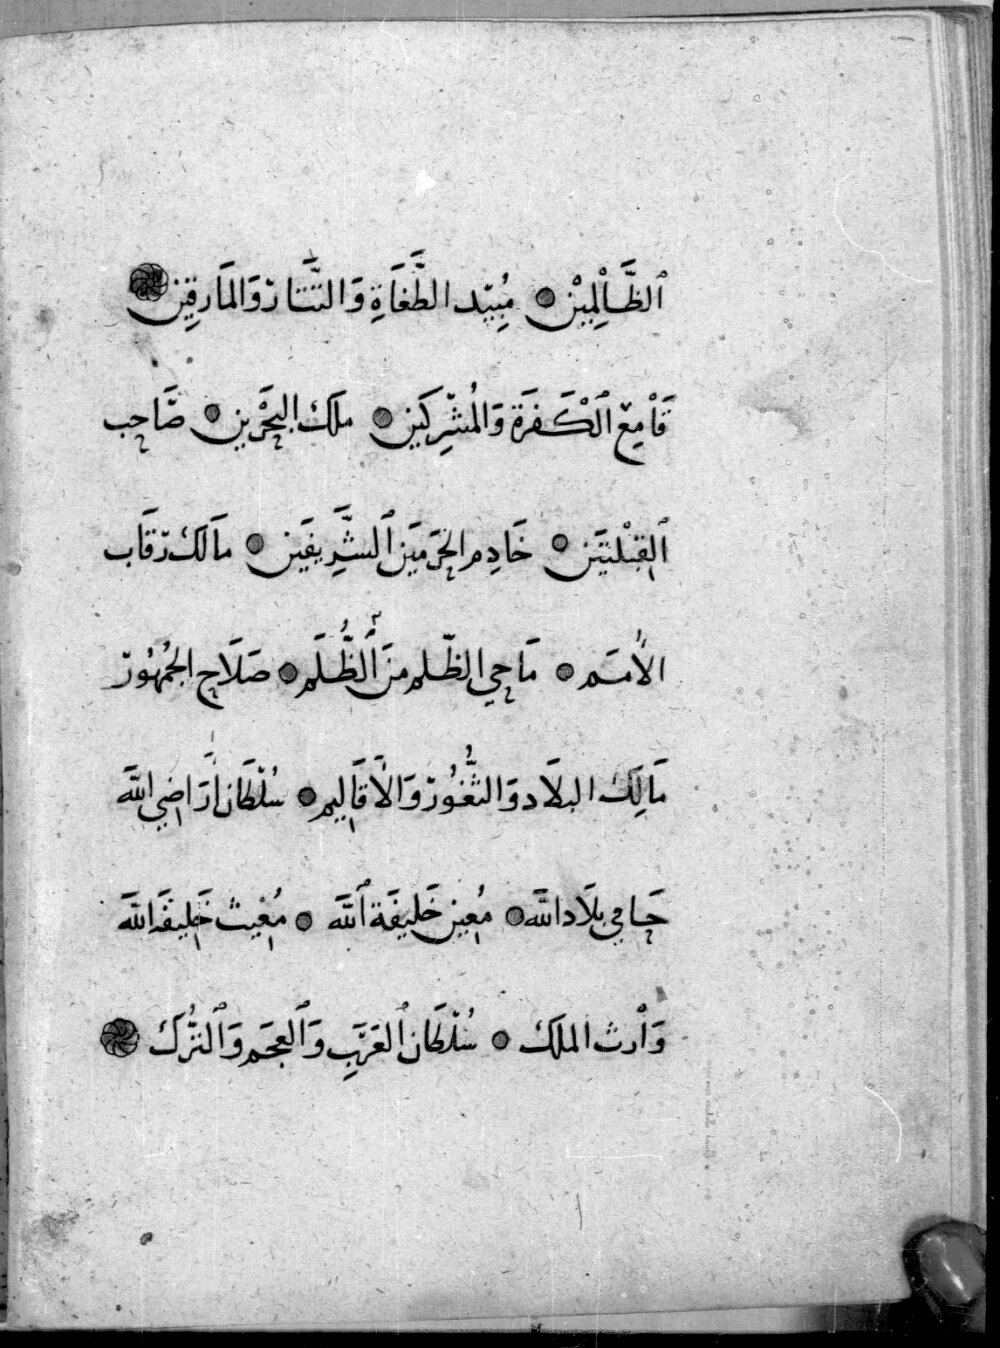 ٱلظَّالِمِيْن ۞ مُبِيْد الطُّغَاةِ وَالتَّتَار وَالمَارِقِين ۞
قَاْمِع ٱلْكَفَرَة وَالمُشْرِكِين ۞ ملَك البَحْرَين ۞ صَاحِب
ٱلقِبْلتَين ۞ خَادِم الحَرَمَين ٱلشَّرِيفَين ۞ مَالك رّقَاب
الأُمَم ۞ مَاحِي الظّلم منَ ٱلظُّلَم ۞ صَلَاح الجُمْهُور
مَالِك البلَاد وَالثُّغُور وَالأَقَالِيم ۞ سُلْطَان أَرَاضِي اللَّه
حَامِي بلَاد اللَّه ۞ مُعِين خَلِيفَة ٱللَّه ۞ مُغِيث خَلِيفَة اللَّه
وَاْرث الملَك ۞ سُلْطَان ٱلعَرَبِ وَٱلعجَم وَٱلتُّرك ۞